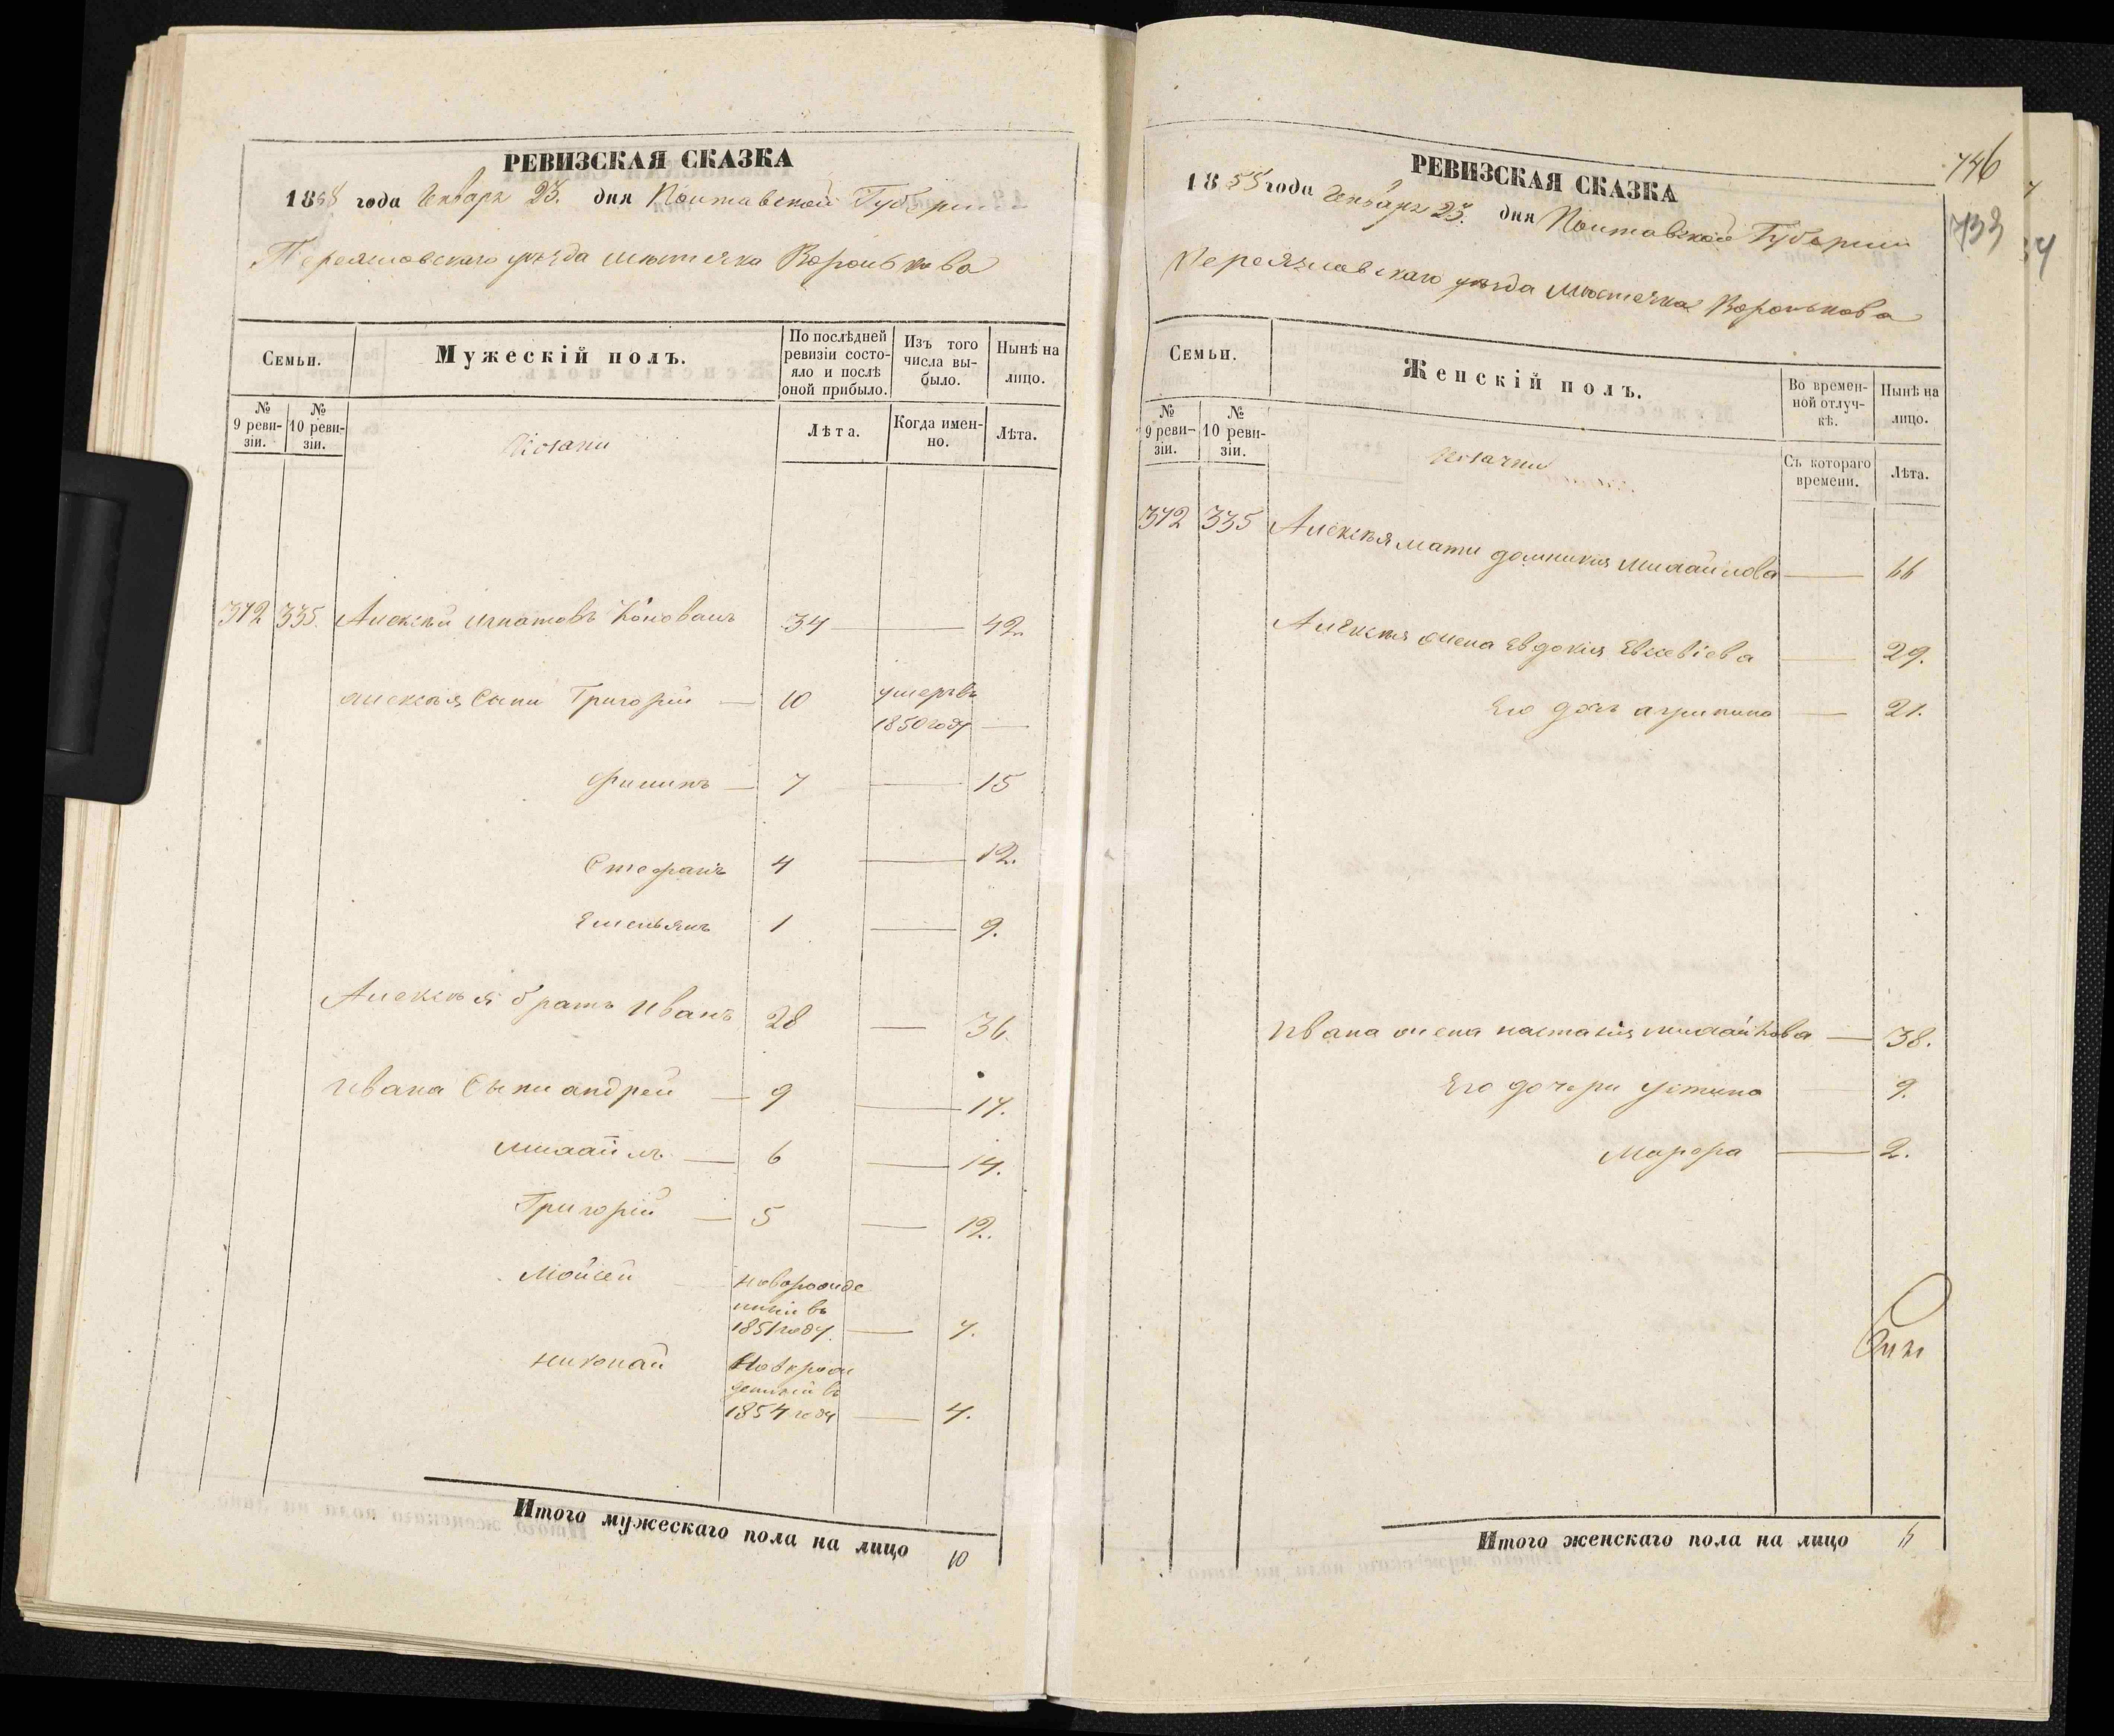 РЕВИЗСКАЯ СКАЗКА
1858 года Генваря 23. дня Полтавской Губернии
Переяславскаго уѣзда мѣстечка Воронькова
Семьи.
Мужескій полъ.
По послѣдней ревизіи состояло и послѣ оной прибыло.
Изъ того числа выбыло.
Нынѣ на лицо.
№ 9 ревизіи.
№ 10 ревизіи.
Козаки
Лѣта.
Когда именно.
Лѣта.
372 335. Алексѣй Игнатовъ Коновалъ 34 — 42.
Алексѣя Сыни Григорій — 10 умеръ въ
1850 году —
Филипъ — 7 — 15
Стефанъ 4 — 12.
Емельянъ 1 — 9.
Алексѣя братъ Иванъ 28 — 36.
Ивана Сыни андрей — 9 — 17.
михаилъ — 6 — 14.
Григорій — 5 — 12.
Мойсей новорожде
нний въ
1851 году. — 7.
николай Новорож
денний въ
1854 году — 4.
Итого мужескаго пола на лицо 10
746
733
РЕВИЗСКАЯ СКАЗКА
1858 года Генваря 23. дня Полтавской Губернии
Переяславскаго уѣзда мѣстечка Воронькова
Семьи.
Женскій полъ.
Во временной отлучкѣ.
Нынѣ на лицо.
№ 9 ревизіи.
№ 10 ревизіи.
козачки
Съ котораго времени.
Лѣта.
372 335 Алексѣя мати домникия михайлова — 66
Алексѣя жена Евдокия Евсевіева — 29.
Его дочь агрипина — 21.
Ивана жена настасия михайлова — 38.
Его дочери устина — 9.
Марфа — 2.
Итого женскаго пола на лицо 6
34